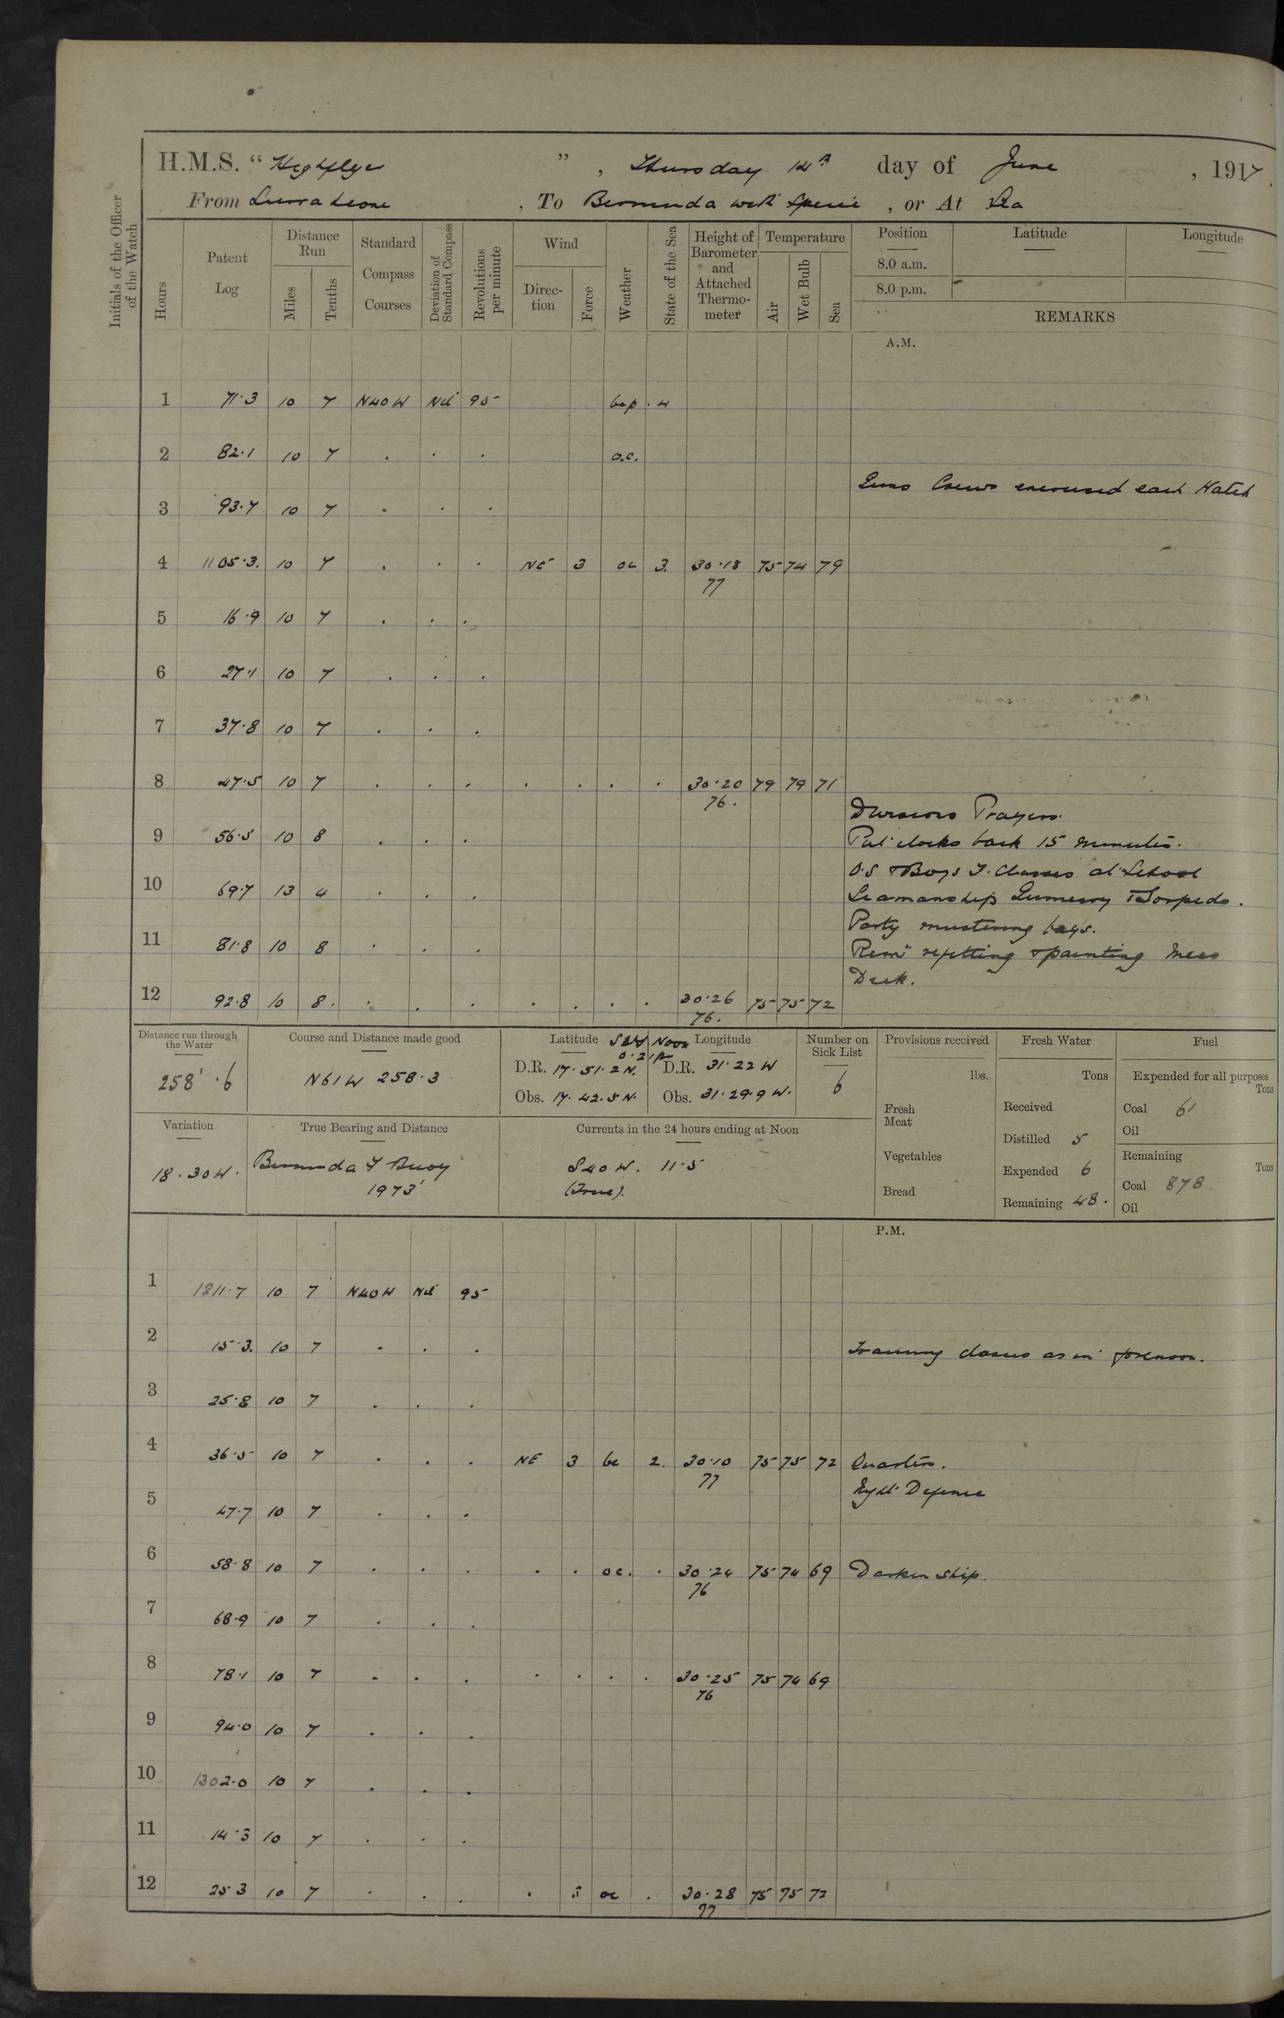 H.M.S. " Highflyer ", Thursday 14th day of June, 1917.
From Sierra Leone, To Bermuda with Specie, or At Sea
Initials of the Officer of the Watch
Hours Patent Log Distance Run Miles Tenths Standard Compass Courses Deviation of Standard Compass Revolutions per minute Wind Direction Force Weather State of the Sea Height of Barometer and Attached Thermometer Temperature Air Wet Bulb Sea Position Latitude Longitude
8.0 a.m.
8.0 p.m.
REMARKS
A.M.
1 71.3 10 7 N40W Nil 95 bcp. 4
2 82.1 10 7 . . . o.c.
Guns Crews exercised each Watch
3 93.7 10 7 . . .
4 1105.3. 10 7 . . . NE 3 oc 3. 30.18 77 75 74 79
5 16.9 10 7 . . .
6 27.1 10 7 . . .
7 37.8 10 7 . . .
8 47.5 10 7 . . . . . . . 30.20 76. 79 79 71
Divisions Prayers.
9 56.5 10 8 . . . Put clocks back 15 minutes.
O.S & Boys T. Classes at School
10 69.7 13 4 . . . Seamanship Gunnery & Torpedo.
Party mustering bags.
11 81.8 10 8 . . . Remr refitting & painting Mess
Deck.
12 92.8 10 8. . . . . . . . 30.26 76. 75 75 72
Distance run through the Water Course and Distance made good Latitude Noon Longitude Number on Sick List Provisions received Fresh Water Fuel
258'.6 N61W 258.3 D.R. 17.51.2 N. D.R. 31.22 W 6 lbs. Tons Expended for all purposes Tons
Obs. 17.42.5 N. Obs. 31.29.9 W. Fresh Meat Received Coal 61
Oil
Variation True Bearing and Distance Currents in the 24 hours ending at Noon Distilled 5
18.30 W. Bermuda F Buoy S40W. 11.5 Vegetables Expended 6 Remaining Tons
1973' (True). Bread Remaining 48. Coal 878
Oil
P.M.
1 1211.7 10 7 N40W Nil 95
2 15.3. 10 7 . . . Training classes as in forenoon.
3 25.8 10 7 . . .
4 36.5 10 7 . . . NE 3 bc 2. 30.10 77 75 75 72 Quarters.
Night Defence
5 47.7 10 7 . . .
6 58.8 10 7 . . . . . oc. . 30.24 76 75 74 69 Darken Ship.
7 68.9 10 7 . . .
8 78.1 10 7 . . . . . . . 30.25 76 75 74 69
9 94.0 10 7 . . .
10 1302.0 10 7 . . .
11 14.3 10 7 . . .
12 25.3 10 7 . . . . oc . 30.28 77 75 75 72